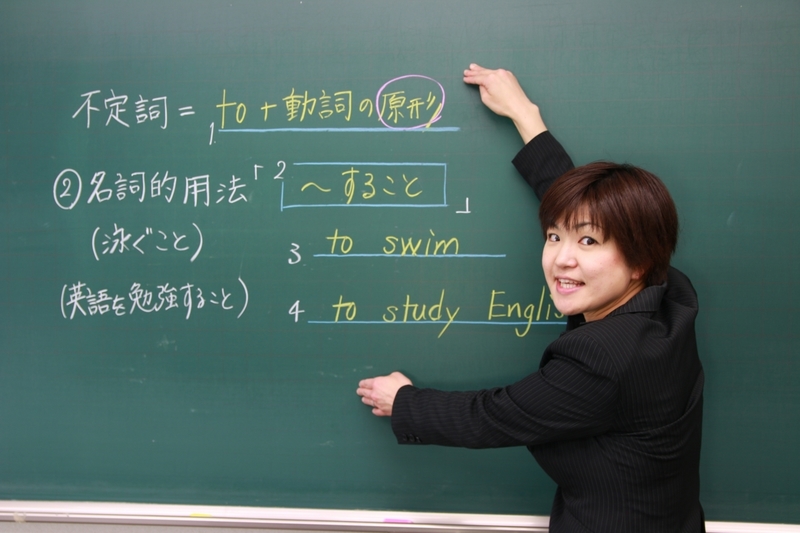 不定詞 = 1. to + 動詞の原形
② 名詞的用法「2 ～すること 」
(泳ぐこと) 3. to swim
(英語を勉強すること) 4 to study Englis